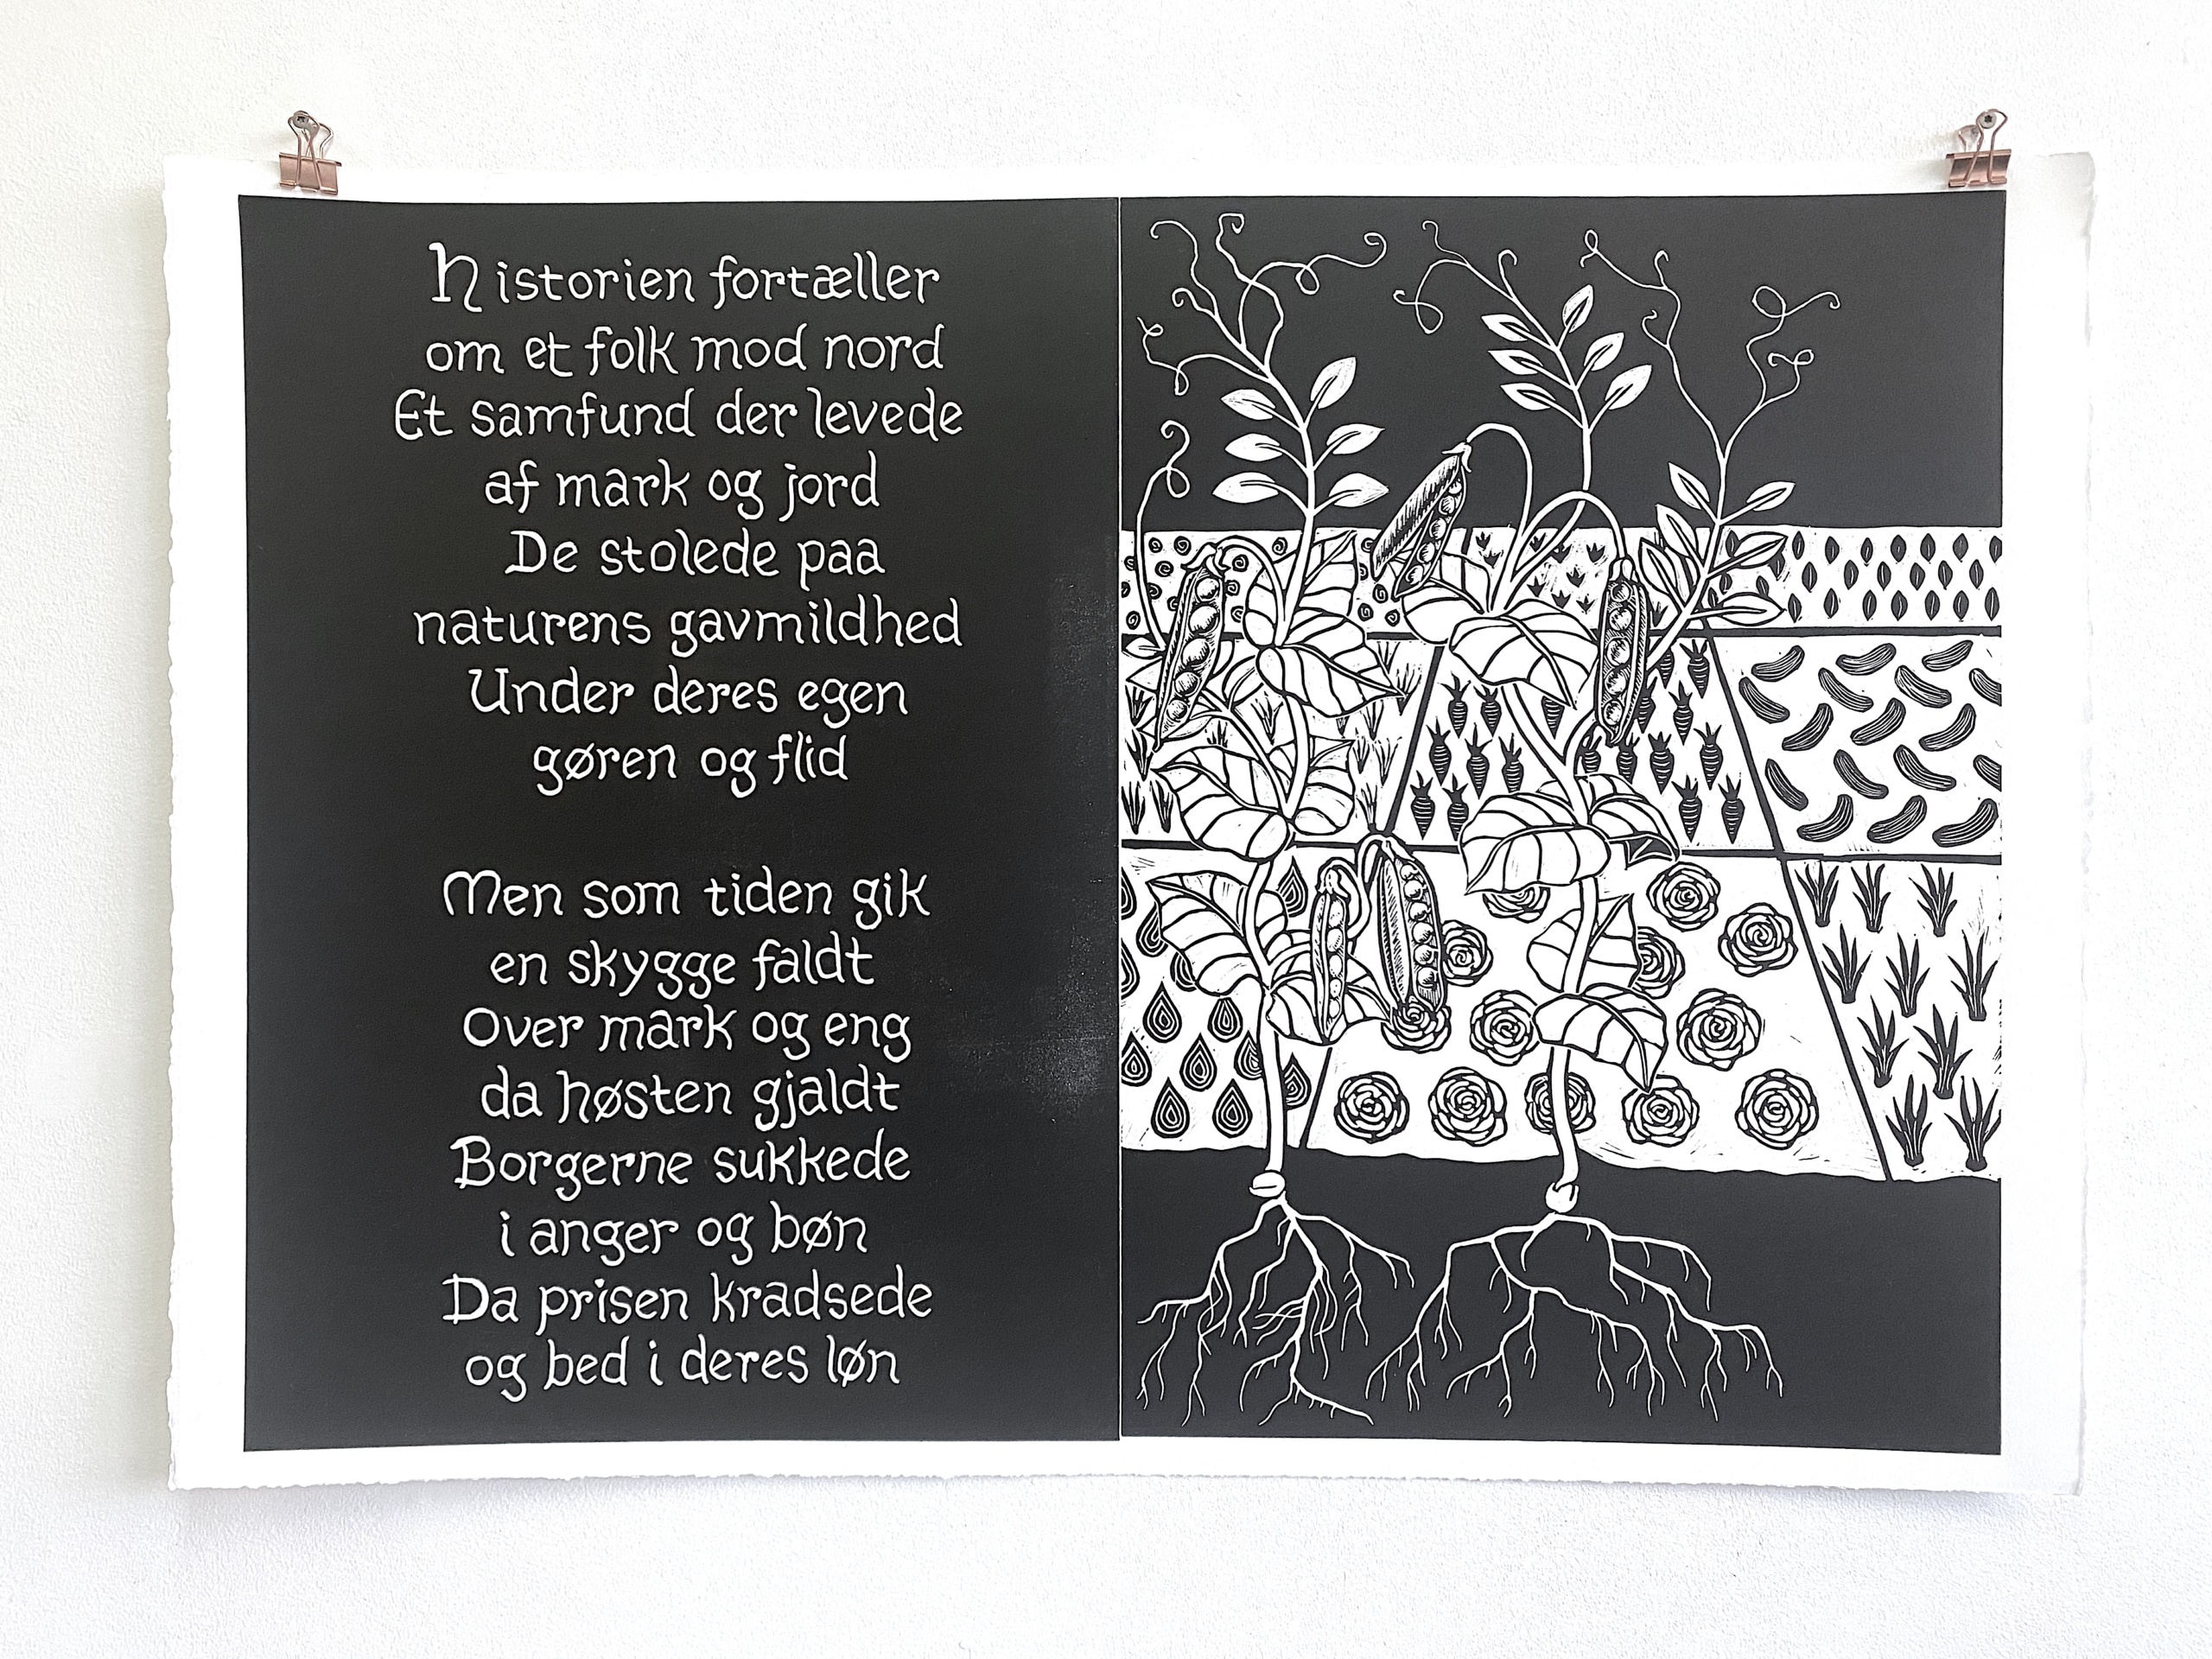 Historien fortæller
om et folk mod nord
Et samfund der levede
af mark og jord
De stolede paa
naturens gavmildhed
Under deres egen
gøren og flid
Men som tiden gik
en skygge faldt
Over mark og eng
da høsten gjaldt
Borgerne sukkede
i anger og bøn
Da prisen kradsede
og bed i deres løn